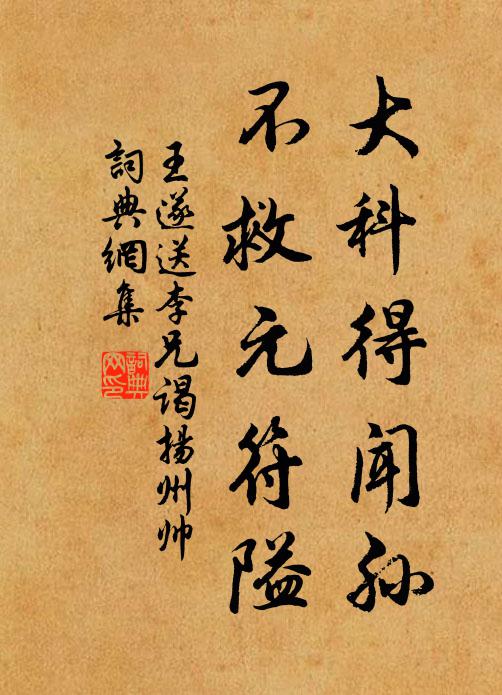 大科得闻孙
不救元符隘
王遂送李兄谒扬州帅
词典網集
詞典網印